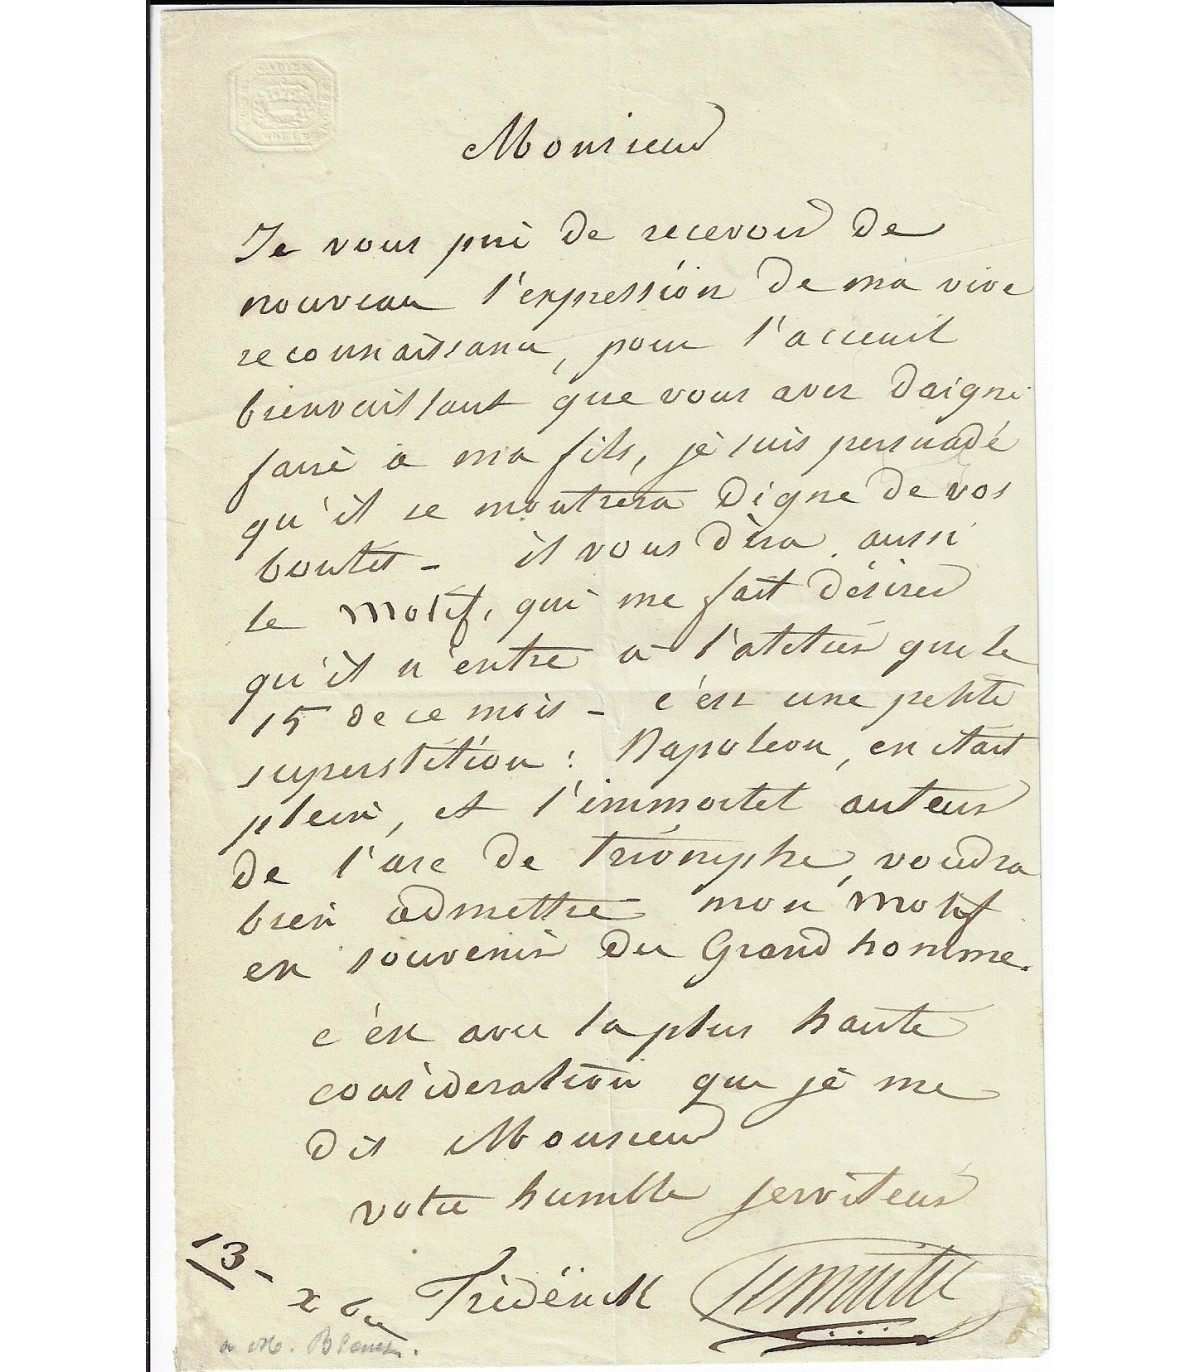 Monsieur
Je vous prie de recevoir de
nouveau l'expression de ma vive
reconnaissance, pour l'accueil
bienveillant que vous avez daigné
faire à mon fils, je suis persuadé
qu'il se montrera digne de vos
bontés - il vous dira aussi
le motif, qui me fait désirer
qu'il n'entre à l'atelier que le
15 de ce mois - c'est une petite
superstition : Napoléon, en était
plein, et l'immortel auteur
de l'arc de triomphe, voudra
bien admettre mon motif
en souvenir du Grand homme.
c'est avec la plus haute
considération que je me
dis Monsieur
votre humble serviteur
13 -
x bre Frédérick Lemaître
a M. Blouet.